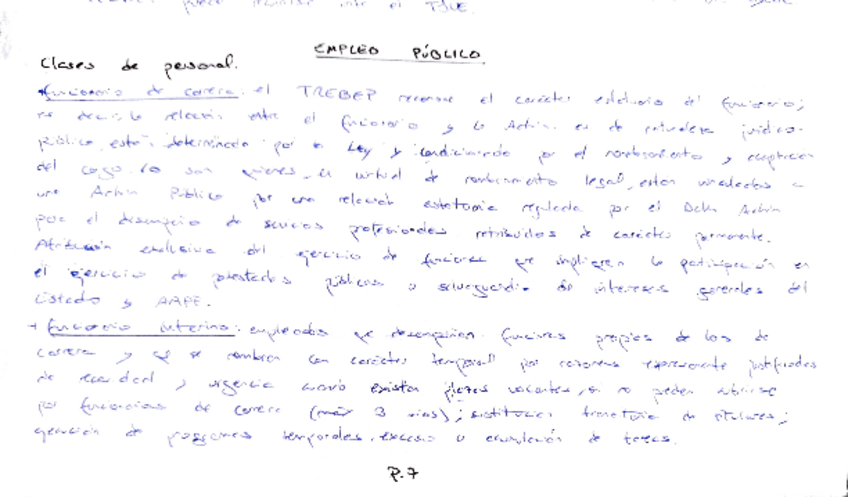 puede ante el TJUE.
EMPLEO PÚBLICO
Clases de personal.
funcionario de carrera: el TREBEP reconoce el carácter estatutario del funcionario;
es decir, la relación entre el funcionario y la Admin. es de naturaleza jurídico-
pública, está determinada por la Ley y condicionado por el nombramiento y aceptación
del cargo. Lo son quienes, en virtud de nombramiento legal, están vinculados a
una Admin Pública por una relación estatutaria regulada por el Decho Admin
para el desempeño de servicios profesionales retribuidos de carácter permanente.
Atribución exclusiva del ejercicio de funciones que impliquen la participación en
el ejercicio de potestades públicas o salvaguardia de intereses generales del
Estado y AAPP.
+ funcionario interino: empleados que desempeñan funciones propias de los de
carrera y que se nombran con carácter temporal por razones expresamente justificadas
de necesidad y urgencia cuando existan plazas vacantes, si no pueden cubrirse
por funcionarios de carrera (máx 3 años); sustitución transitoria de titulares;
ejecución de programas temporales, exceso o acumulación de tareas.
P.7